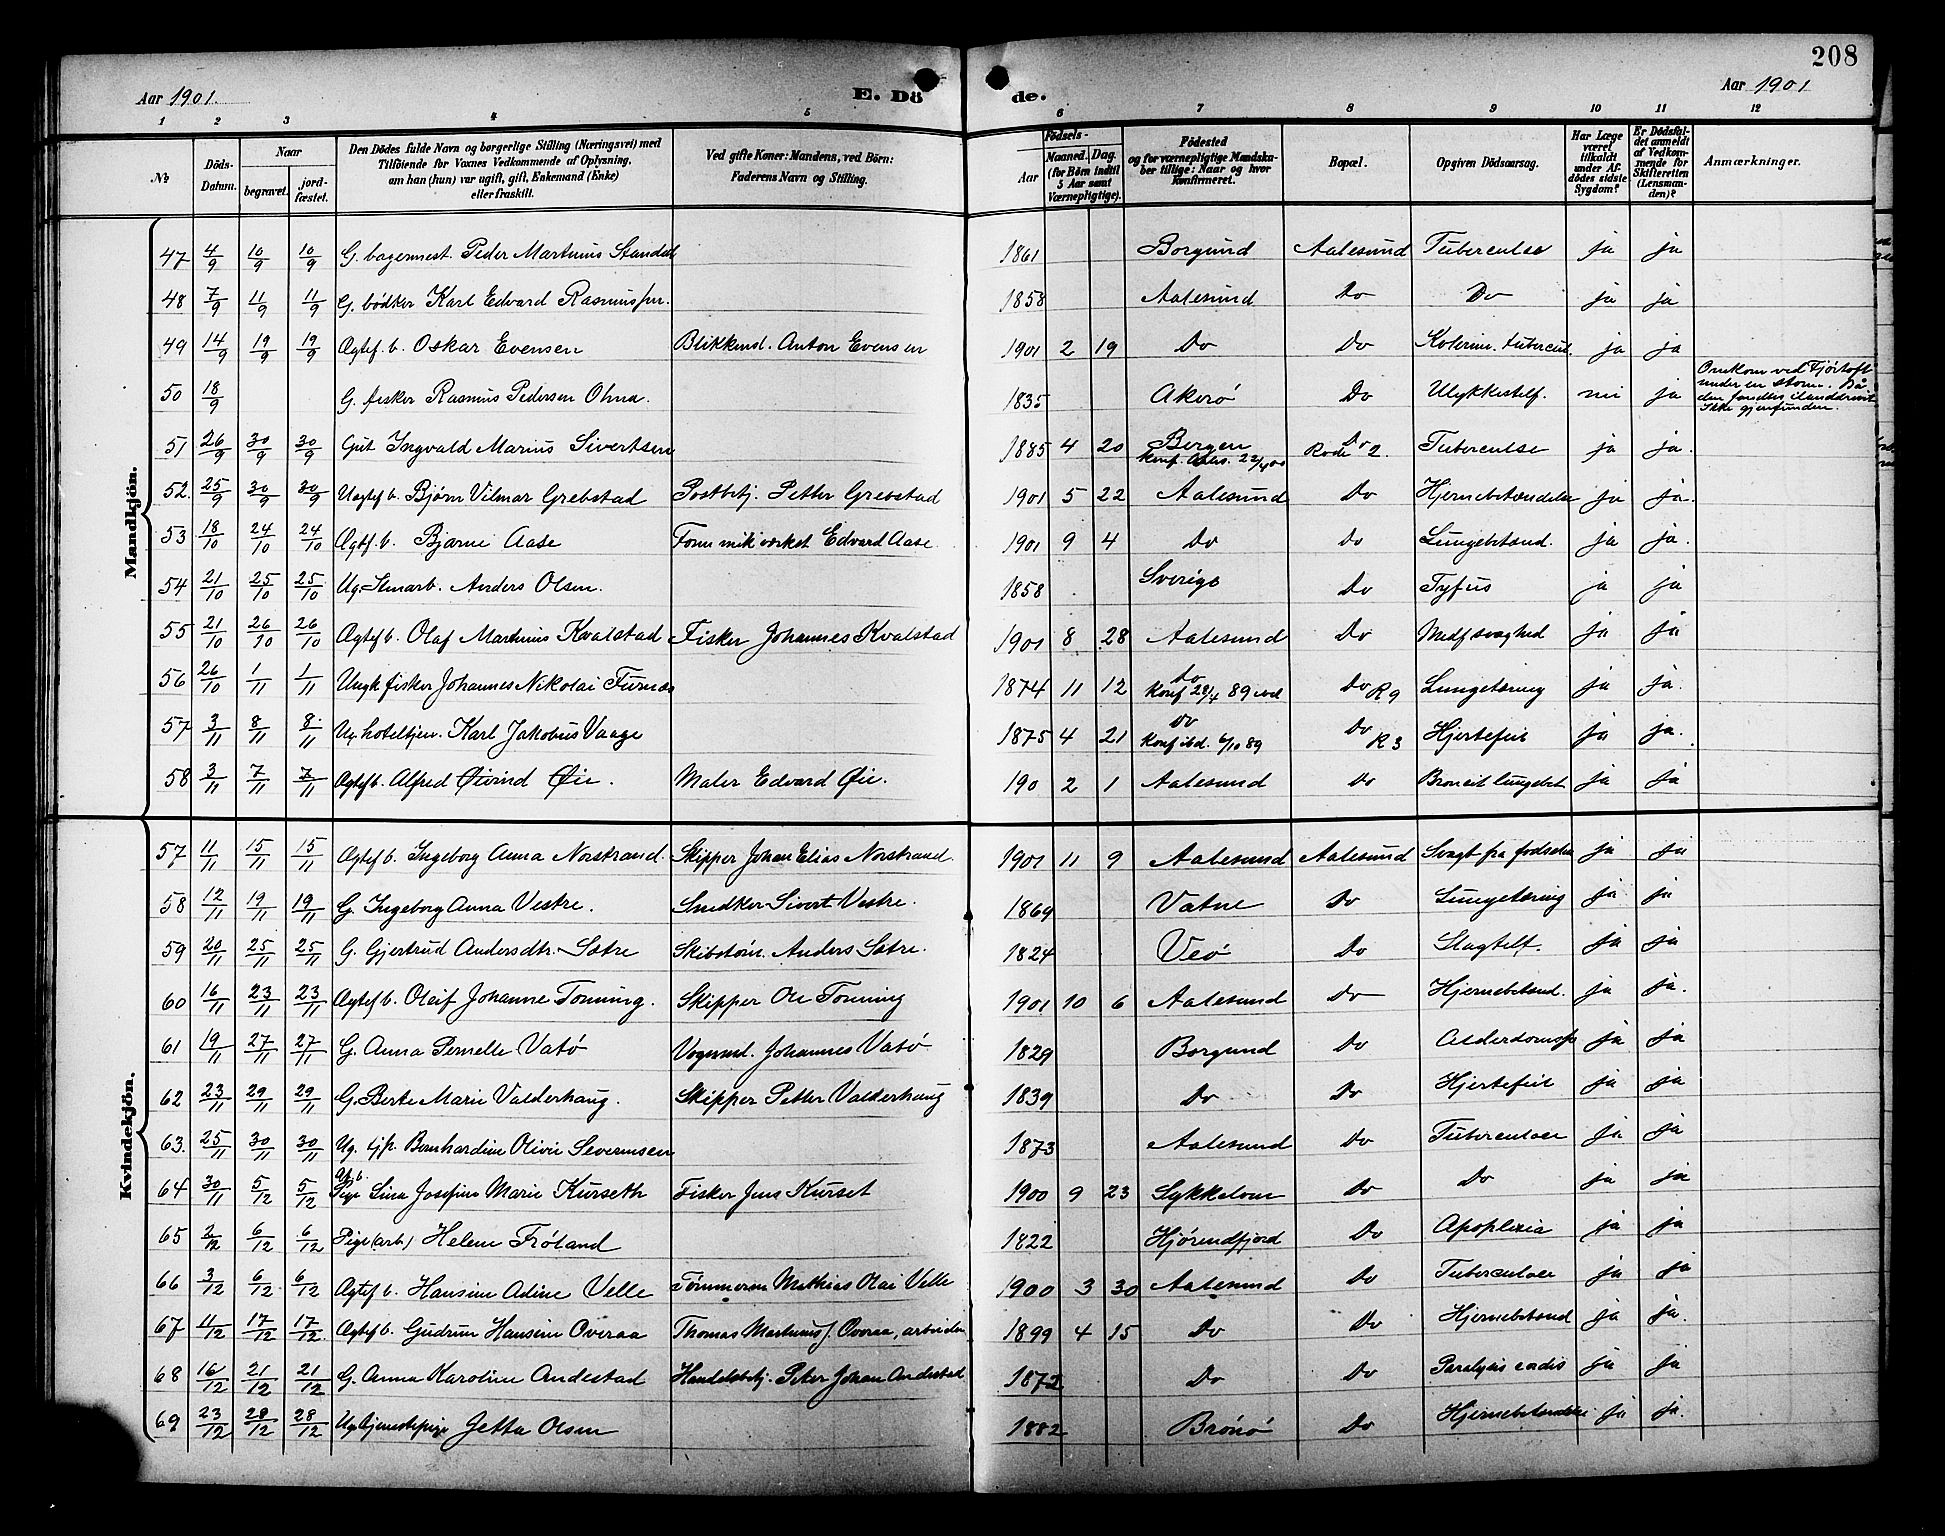 208
Aar 1901.
E. Dö
de.
Aar 1901
1 2 3 4 5 6 7 8 9 10 11 12
№
Döds-
Datum.
Naar
begravet.
jord-
fæstet.
Den Dödes fulde Navn og borgerlige Stilling (Næringsvei) med
Tilföiende for Voxnes Vedkommende af Oplysning,
om han (hun) var ugift, gift, Enkemand (Enke)
eller fraskilt.
Ved gifte Koner: Mandens, ved Börn:
Faderens Navn og Stilling.
Födsels-
Aar
Maaned. Dag.
(for Börn indtil
5 Aar samt
Værnepligtige).
Födested
og for værnepligtige Mandska-
ber tillige: Naar og hvor
Konfirmeret.
Bopæl.
Opgiven Dödsaarsag.
Har Læge
været
tilkaldt
under Af-
dödes sidste
Sygdom?
Er Dödsfal-
det anmeldt
af Vedkom-
mende for
Skifteretten
(Lensman-
den)?
Anmærkninger.
Mandkjön.
47 4/9 10/9 10/9 G. bagermest. Peder Martinus Standal 1861 Borgund Aalesund Tuberculse ja ja
48 7/9 11/9 11/9 G. bödker Karl Edvard Rasmussen. 1858 Aalesund Do Do ja ja
49 14/9 19/9 19/9 Ægtef. b. Oskar Evensen Blikkensl. Anton Evensen 1901 2 19 Do Do tubercul. ja ja
50 18/9 G. fisker Rasmus Pedersen Ohna. 1835 Akerö Do Ulykkestilf. nei ja Omkom ved Fjörtoft
under en storm. Bå-
den fandtes ilanddrevet
Ikke gjenfunden.
51 26/9 30/9 30/9 Gut Ingvald Marius Sivertsen 1885 4 20 Bergen
Konf. Aales. 22/4 00 Do Rode 2. Tuberculse ja ja
52. 25/9 30/9 30/9 Uægtef b. Bjørn Vilmar Grebstad Postbetj. Petter Grebstad 1901 5 22 Aalesund Do Hjernebetændelse ja ja.
53 18/10 24/10 24/10 Ægtef. b. Bjarne Aase Edvard Aase 1901 9 4 Do Do Lungebetænd. ja ja.
54 21/10 25/10 25/10 Ug. Stenarb. Anders Olsen. 1858 Sverige Do Tyfus ja ja
55 21/10 26/10 26/10 Ægtef b. Olaf Martinius Kvalstad Fisker Johannes Kvalstad 1901 8 28 Aalesund Do Medf svaghed ja ja
56 26/10 1/11 1/11 Ungk fisker Johannes Nikolai Furnæs 1874 11 12 Do
Konf 28/4 89 ibd Do R 9 Lungetæring ja ja.
57 3/11 8/11 8/11 Ug. hoteltjen. Karl Jakobus Vaage 1875 4 21 Do
Konf ibd. 6/10 89 Do R 3 Hjertefeil ja ja.
58 3/11 7/11 7/11 Ægtef b. Alfred Øivind Øie. Maler Edvard Øie. 190 2 1 Aalesund Do Broncit lungebet ja ja
Kvindekjön.
57 11/11 15/11 15/11 Ægtef b. Ingeborg Anna Norstrand. Skipper Johan Elias Norstrand. 1901 11 9 Aalesund Aalesund Svagt fra fødselen ja ja
58 12/11 19/11 19/11 G. Ingeborg Anna Vestre. Snedker Sivert Vestre. 1869 Vatne Do Lungetæring ja ja
59 20/11 25/11 25/11 G. Gjertrud Andersdtr. Sætre Skibstøm. Anders Sætre. 1824 Veö Do Slagtilf. ja ja
60 16/11 23/11 23/11 Ægtef b. Olaif Johanne Tonning. Skipper Ole Tonning 1901 10 6 Aalesund Do Hjernebetænd. ja ja.
61 19/11 27/11 27/11 G. Anna Pernelle Vatö Vognmd. Johannes Vatö 1829 Borgund Do Alderdomssv ja ja
62 23/11 29/11 29/11 G. Berte Marie Valderhaug. Skipper Petter Valderhaug 1839 Do Do Hjertefeil ja ja
63. 25/11 30/11 30/11 Ug. tjp. Bernhardine Olivie Severinsen 1873 Aalesund Do Tuberculose ja ja
64 30/11 5/12 5/12 Æg. b.
Pige Lina Josefine Marie Kurseth Fisker Jens Kurset 1900 9 23 Sykkelven Do Do ja ja
65 2/12 6/12 6/12 Pige (arb.) Helene Fröland 1822 Hjørendfjord Do Apoplexia ja ja
66 3/12 6/12 6/12 Ægtef b. Hansine Adine Velle Tømmerm Mathias Olai Velle 1900 3 30 Aalesund Do Tuberculose ja ja
67 11/12 17/12 17/12. Ægtef b. Gudrun Hansine Overaa Thomas Martinus J. Overaa, arbeider 1899 4 15 Do Do Hjernebetænd ja ja.
68 16/12 21/12 21/12 G. Anna Karoline Andestad Handelsbetj. Peter Johan Andestad 1872 Do Do Paralysis cordis ja ja
69 23/12 28/12 28/12 Ug tjenestepige Jetta Olsen 1882 Brönö Do Hjernebetændelse ja ja.